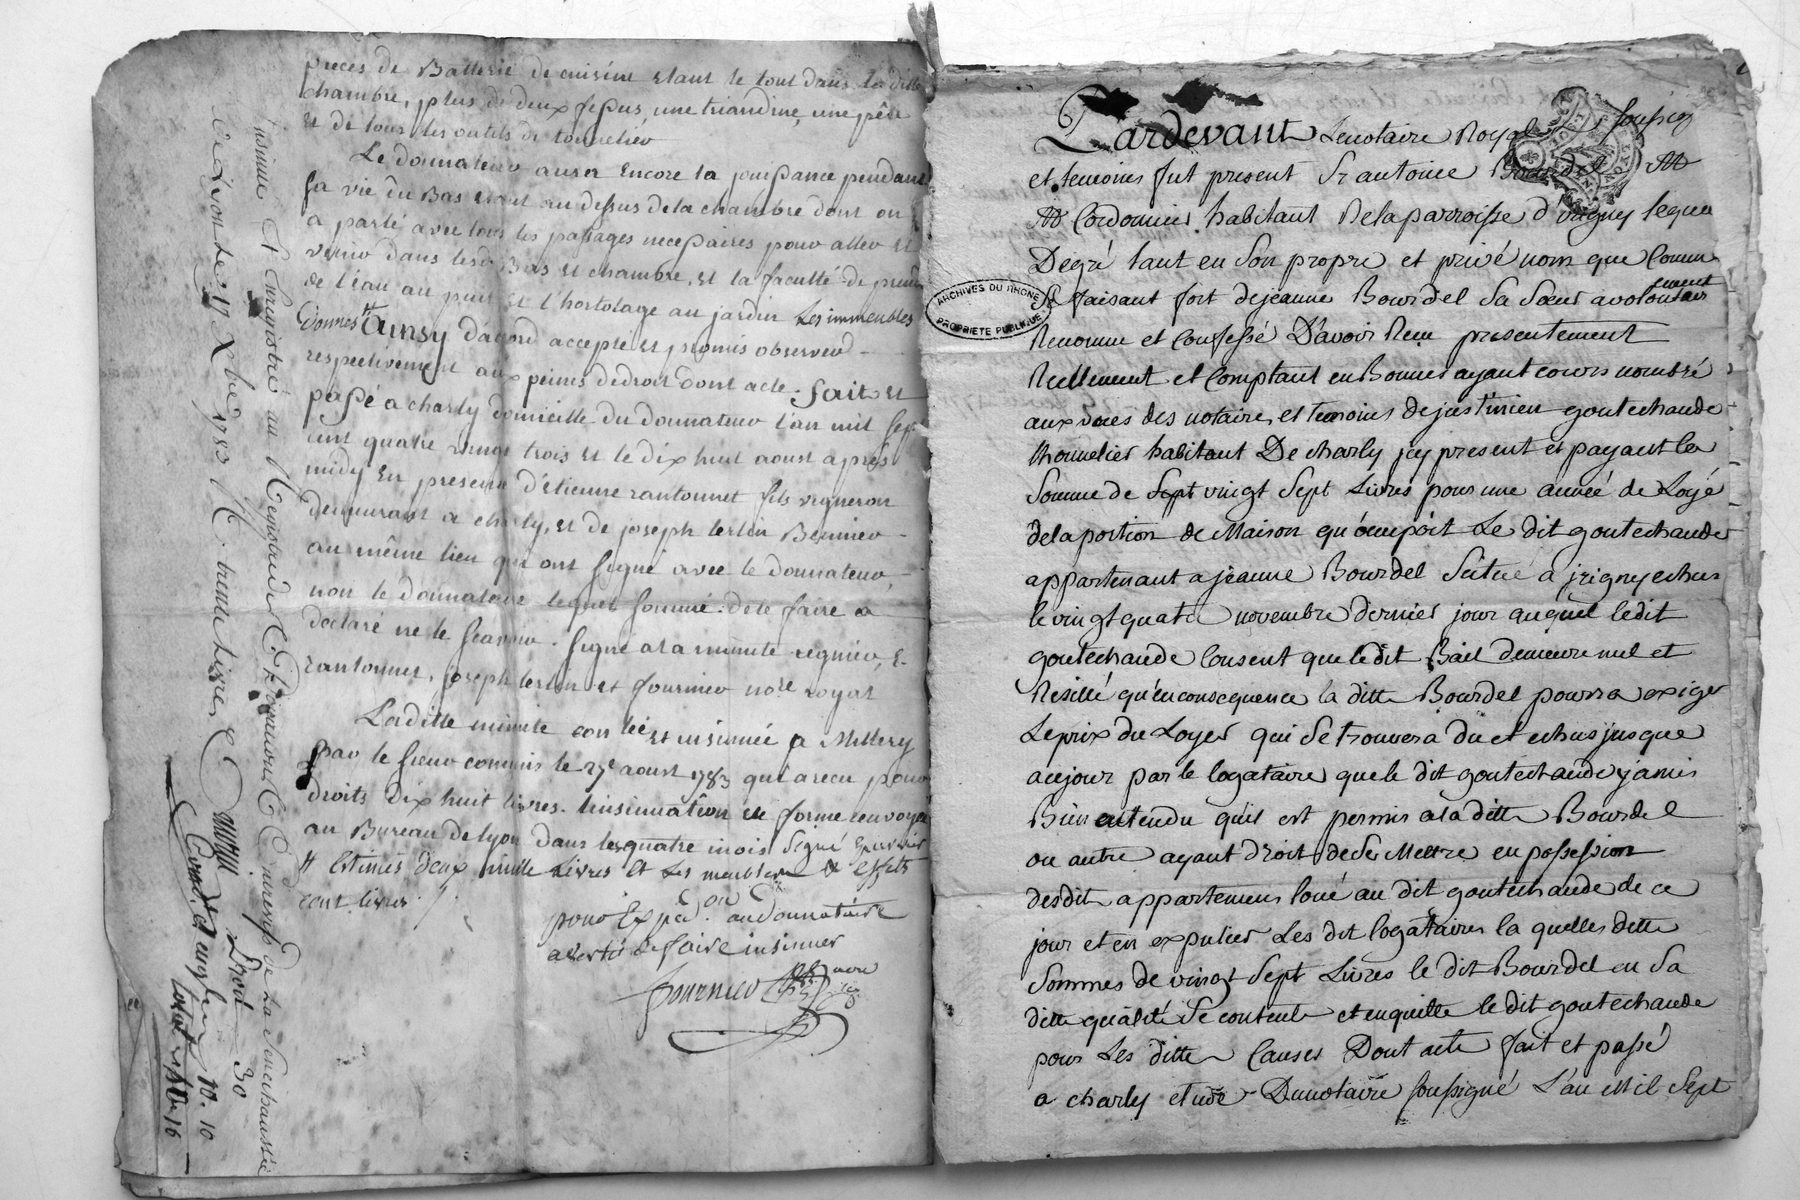 pieces de Batterie de cuisine etant le tout dans la ditte
chambre, plus de deux une triandine, une pêle
et de tous les outils de tonnelier
Le donnateur aura Encore la jouissance pendant
sa vie du Bas etant au dessus de la chambre dont on
a parlé avec tous les passages necessaires pour aller et
venir dans lesd. Bas et chambre, et la faculté de prendre
de l'eau au puit et l'hortolage au jardin Les immeubles
donnés Ainsy d'acord accepté et promis observer
respectivement aux peines de droit dont acte. fait et
passé a charly domicille du donnateur l'an mil sept
cent quatre vingt trois et le dix huit aoust après
midy En presence d'étienne rantonnet fils vigneron
demeurant a charly, et de joseph terlin
au même lieu qui ont signé avec le donnateur,
non le donnataire lequel sommé de le faire a
declaré ne le scavoir. signé a la minute regnier, E.
rantonnet, joseph terlin et fournier nore royal
Laditte minute con lée et insinuée a Millery
par le sieur commis le 27e aoust 1783 qui a recu pour
droits dix huit livres. l'insinuation en forme renvoyée
au Bureau de lyon dans les quatre mois signé
# Estimés deux mille Livres Et Les meubles & effets
cent livres
pour Expéon. au donnataire
averti de faire insinuer
fournier
insinué Et Enregistré au Registre de la Senechaussée
a Lyon Le 17 Xbre 1783 R. trente Livres
Droit 30
10. 10
ARCHIVES DU RHONE
PROPRIETE PUBLIQUE
Pardevant Lenotaire Royal soussigné
et temoins fut present Sr antoine Bourdel Me
Me Cordonnier habitant De la parroisse d'irigny lequel
De gré tant en son propre et privé nom que comme
se faisant fort de jeanne Bourdel sa soeur a volontairement
Reconnu et confessé D'avoir Recu presentement
Reellement et comptant en Bonnes ayant cours nombré
aux vües des notaire et temoins de justinien goutechaude
thonnelier habitant De charly icy present et payant la
somme de sept vingt sept Livres pour une année de Loyé
de la portion de Maison qu'ocupoit Le dit goutechaude
appartenant a jeanne Bourdel située a jrigny echus
le vingt quatre novembre dernier jour auquel ledit
goutechaude consent que ledit Bail demeure nul et
Resillé qu'en consequence la ditte Bourdel pourra exiger
Le prix du Loyer qui se trouvera dû et echus jusque
aujour par le logataire que le dit goutechaude y a mis
Bien entendu quil est permis a la ditte Bourdel
ou autre ayant droit de se Mettre en possession
desdit appartemens loué au dit goutechaude de ce
jour et en expulser Les dit logataires la quelle ditte
Sommes de vingt sept Livres le dit Bourdel en sa
ditte qualité se contente et en quitte le dit goutechaude
pour Les ditte Causes Dont acte fait et passé
a charly etude Dunotaire soussigné L'an Mil sept